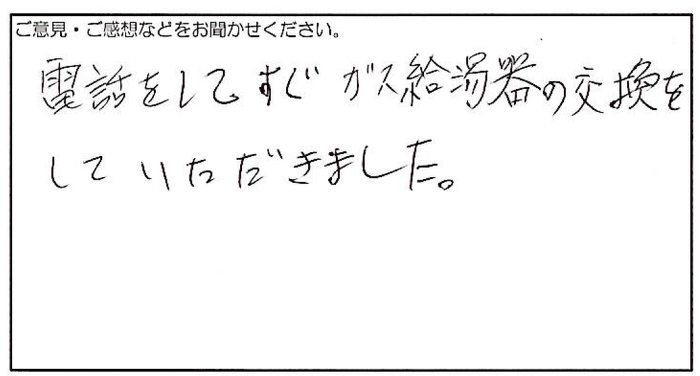 ご意見・ご感想などをお聞かせください。
電話をして、すぐ ガス給湯器の交換を
していただきました。